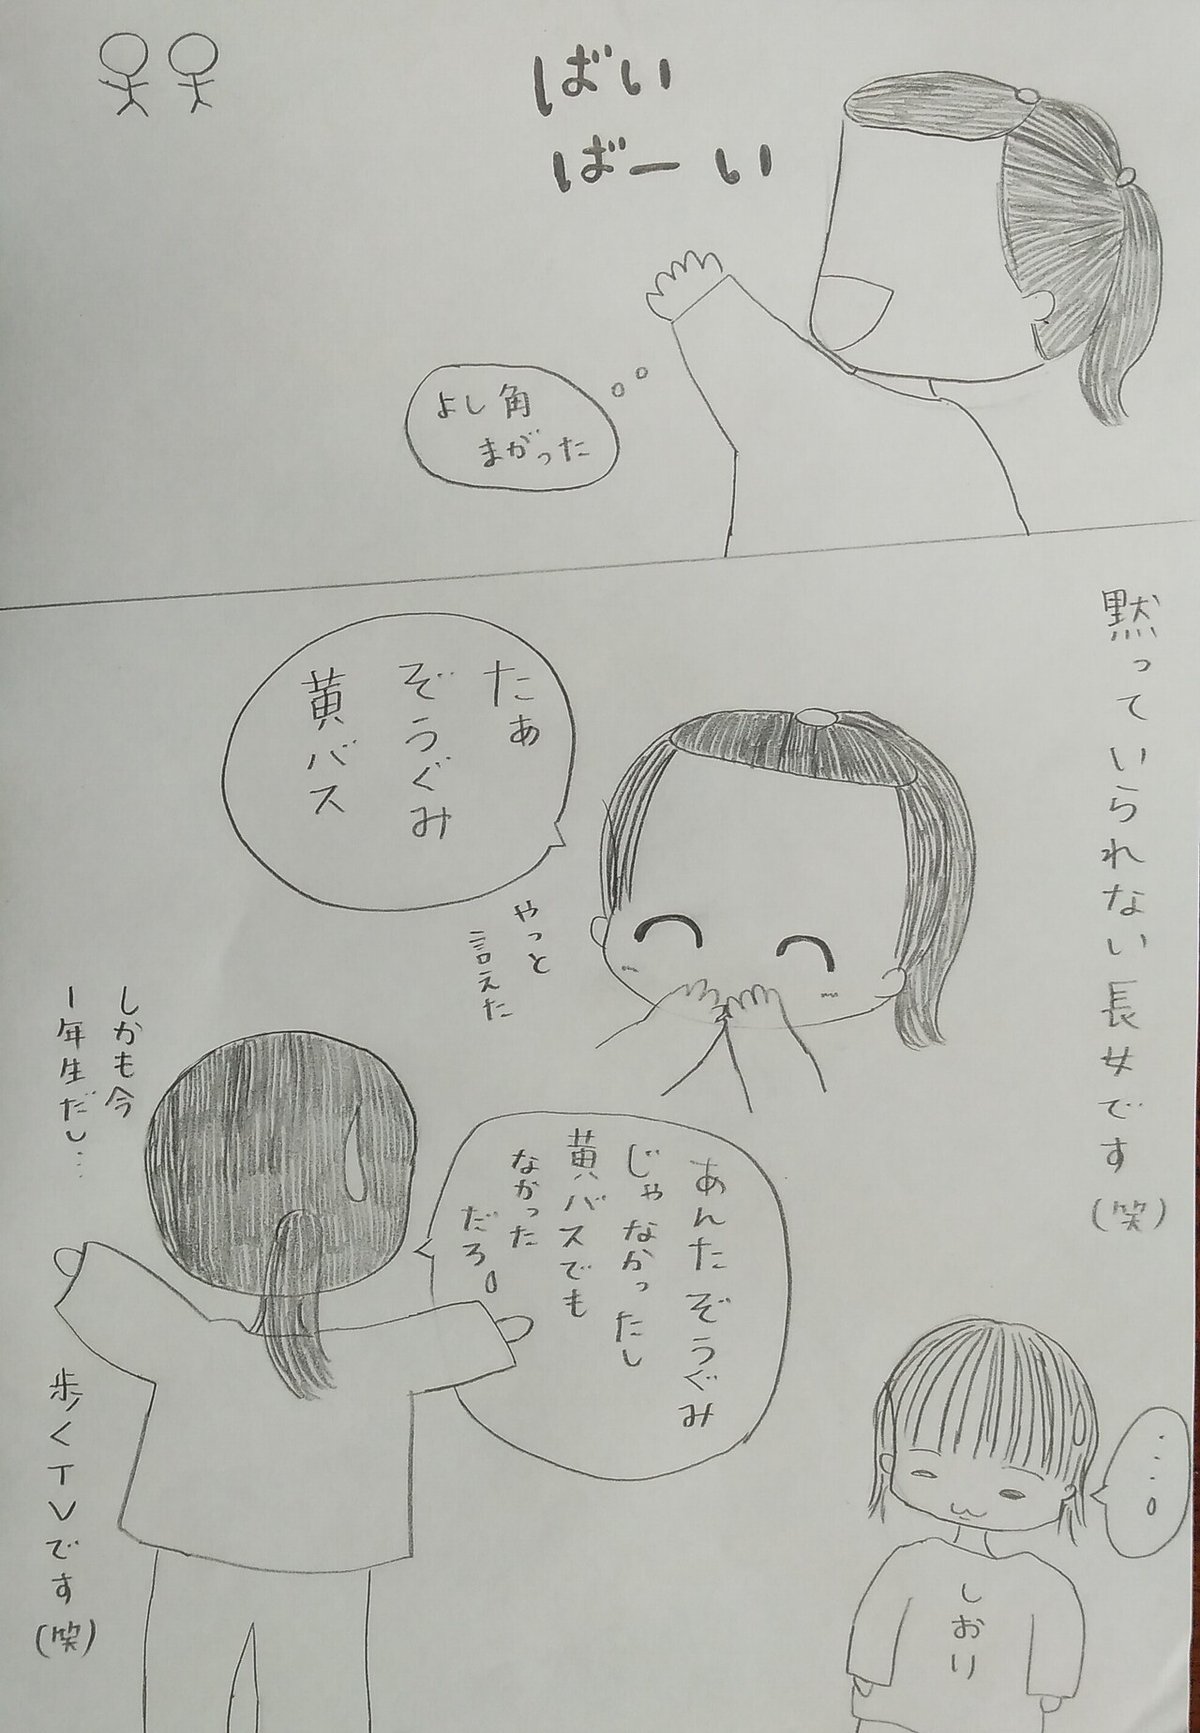 ばい
ばーい
よし角
まがった
黙っていられない長女です
(笑)
たぁ
ぞうぐみ
黄バス
やっと
言えた
あんたぞうぐみ
じゃなかったし
黄バスでも
なかった
だろ。
しかも今
1年生だし…
歩くTVです
(笑)
・・・・。
しおり